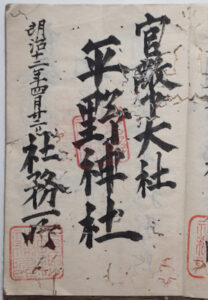 官幣大社
平野神社
明治十二年四月廿二日
社務所